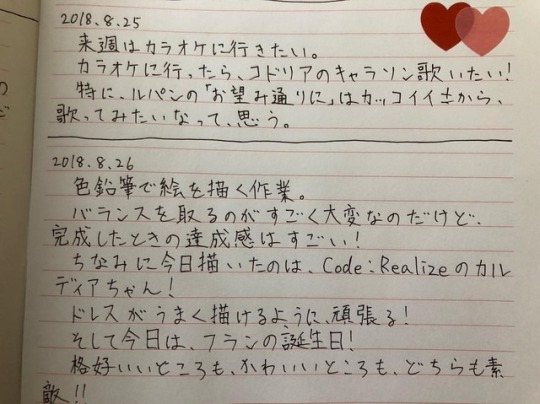 2018.8.25
来週はカラオケに行きたい。
カラオケに行ったら、コドリアのキャラソン歌いたい!
特に、ルパンの「お望み通りに」はカッコイイ
から、
歌ってみたいなって、思う。
2018.8.26
色鉛筆で絵を描く作業。
バランスを取るのがすごく大変なのだけど、
完成したときの達成感はすごい!
ちなみに今日描いたのは、Code:Realizeのカル
ディアちゃん!
ドレスがうまく描けるように、頑張る!
そして今日は、フランの誕生日!
格好いいところも、かわいいところも、どちらも素
敵!!